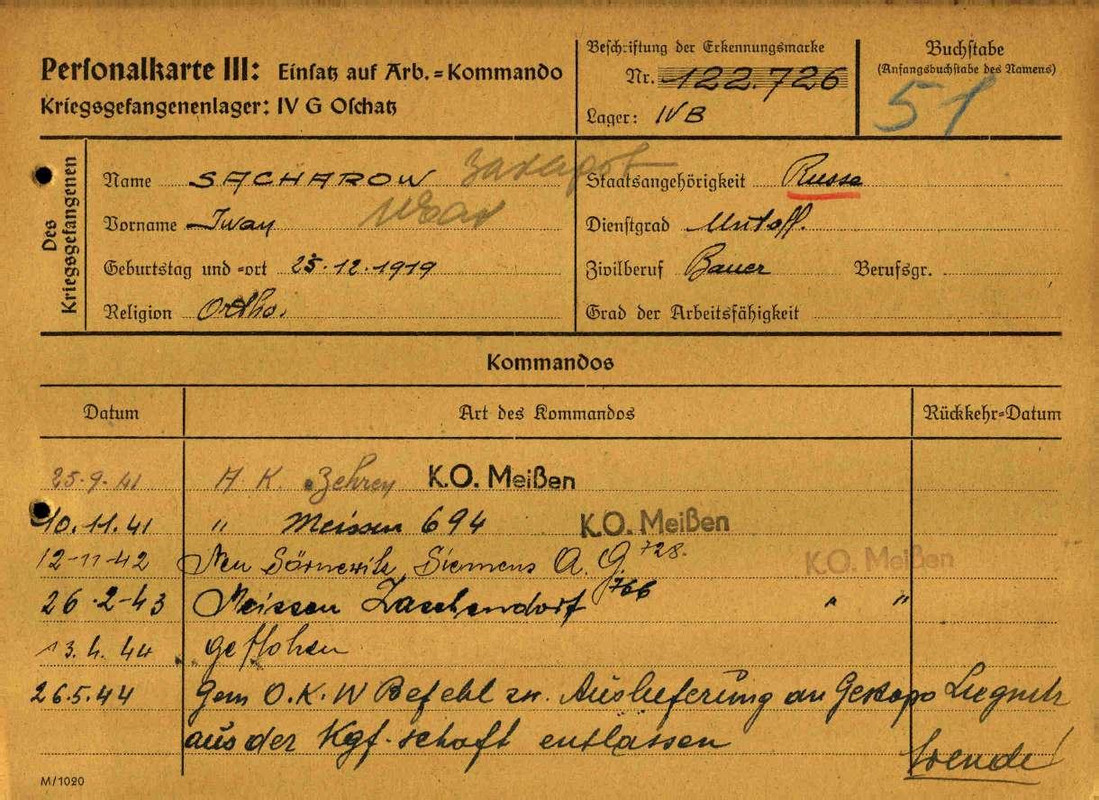 Personalkarte III: Einsatz auf Arb.=Kommando
Kriegsgefangenenlager: IV G Oschatz
Beschriftung der Erkennungsmarke
Nr. 122.726
Lager: IV B
Buchstabe
(Anfangsbuchstabe des Namens)
51
Des Kriegsgefangenen
Name SACHAROW Захаров
Vorname Iwan Иван
Geburtstag und =ort 25.12.1919
Religion Ortho.
Staatsangehörigkeit Russe
Dienstgrad Untoff.
Zivilberuf Bauer Berufsgr.
Grad der Arbeitsfähigkeit
Kommandos
Datum Art des Kommandos Rückkehr=Datum
25.9.41 A. K. Zehren K.O. Meißen
10.11.41 " Meissen 694 K.O. Meißen
12-11-42 Neu Sörnewitz, Siemens A.G. 728. K.O. Meißen
26.2-43 Meissen Zaschendorf 766 " "
13.4.44 geflohen
26.5.44 Gem O.K.W Befehl zw. Auslieferung an Gestapo Liegnitz
aus der Kgf.-schaft entlassen
Wende!
M/1020